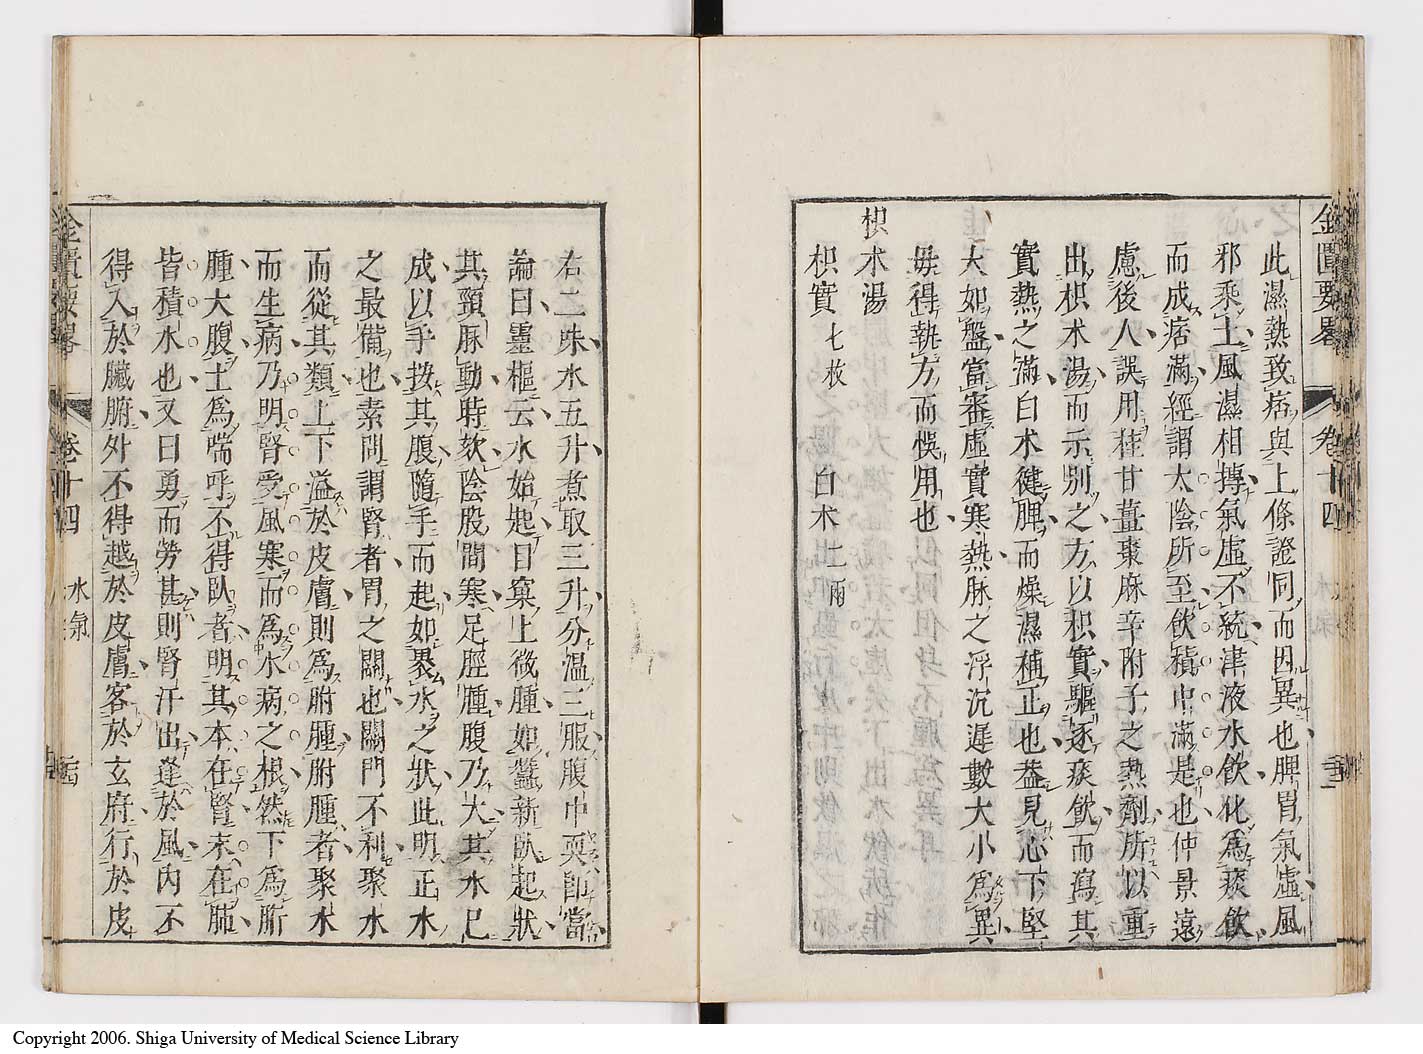 金匱要畧 卷十四 水氣
此濕熱致痞與上條證同而因異也脾胃氣虛風
邪乘土風濕相搏氣虛不統津液水飲化為痰飲
而成痞滿經謂太陰所至飲積中滿是也仲景遠
慮後人誤用桂甘薑棗麻辛附子之熱劑所以重
出枳朮湯而示別之方以枳實驅逐痰飲而瀉其
實熱之滿白朮健脾而燥濕補正也蓋見心下堅
大如盤當審虛實寒熱脉之浮沉遲數大小為異
毋得執方而悞用也
枳朮湯
枳實七枚 白朮二兩
右二味水五升煮取三升分溫三服腹中耎卽當
論曰靈樞云水始起目窠上微腫如蠶新臥起狀
其頸脉動時欬陰股間寒足脛腫腹乃大其水已
成以手按其腹隨手而起如裹水之狀此明正水
之最備也素問謂腎者胃之關也關門不利聚水
而從其類上下溢於皮膚則為胕腫胕腫者聚水
而生病乃明腎受風寒而為水病之根然下為胕
腫大腹上為喘呼不得臥者明其本在腎末在肺
皆積水也又曰勇而勞甚則腎汗出逢於風內不
得入於臟腑外不得越於皮膚客於玄府行於皮
金匱要畧 卷十四 水氣
Copyright 2006. Shiga University of Medical Science Library